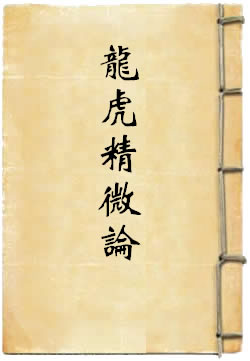 龍虎精微論